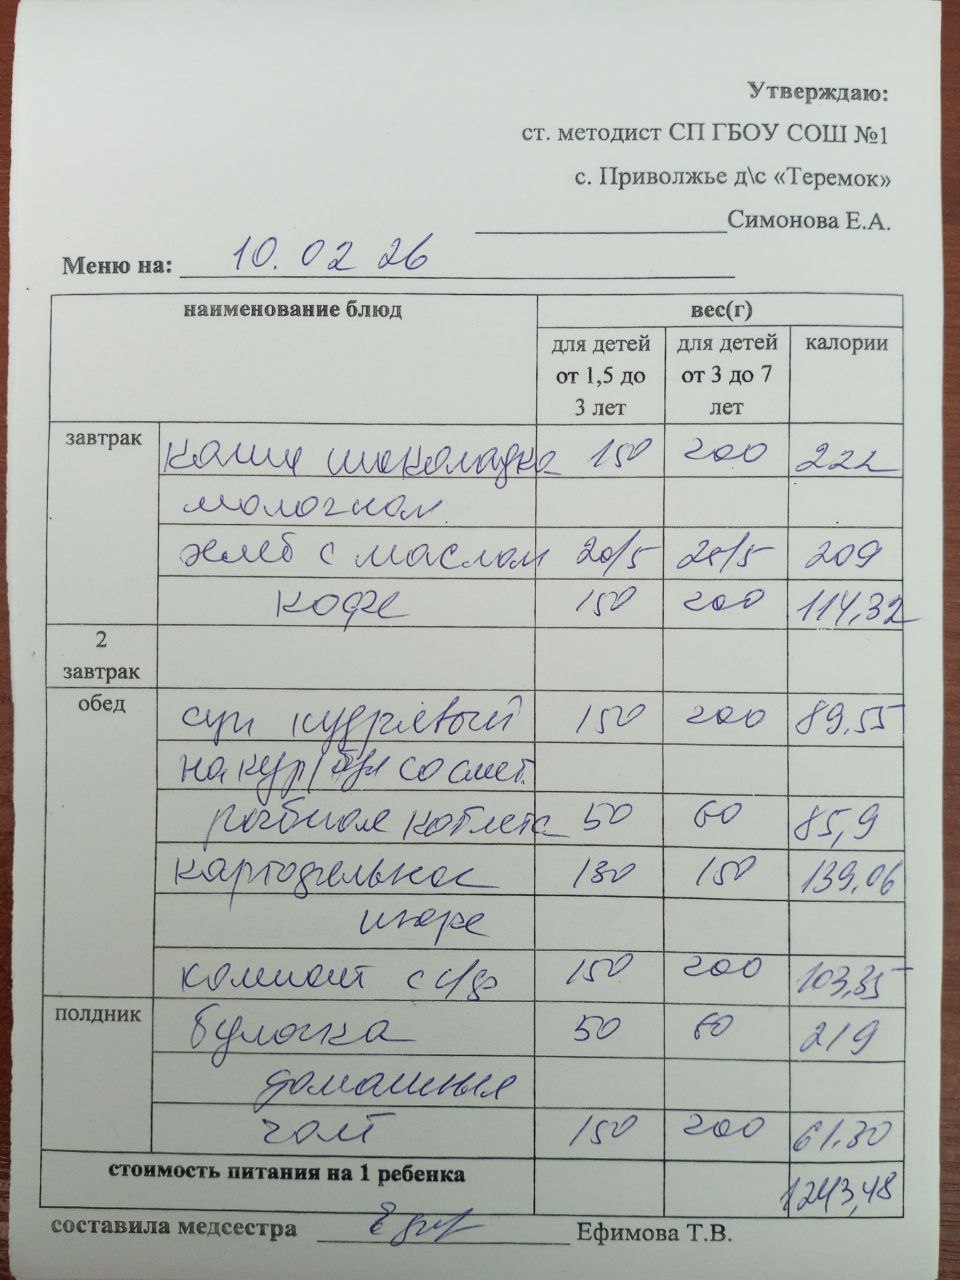 Утверждаю:
ст. методист СП ГБОУ СОШ №1
с. Приволжье д\с «Теремок»
Симонова Е.А.
Меню на: 10.02 26
наименование блюд вес(г)
для детей от 1,5 до 3 лет для детей от 3 до 7 лет калории
завтрак каша шоколадка 150 200 222
молочная
хлеб с маслом 20/5 25/5 209
кофе 150 200 114,32
2 завтрак
обед суп кудрявый 150 200 89,55
на кур/бул со смет.
рыбная котлета 50 60 85,9
картофельное 130 150 139,06
пюре
компот с с/ф 150 200 103,35
полдник булочка 50 60 219
домашняя
чай 150 200 61.30
стоимость питания на 1 ребенка 1243,48
составила медсестра Ефимова Т.В.